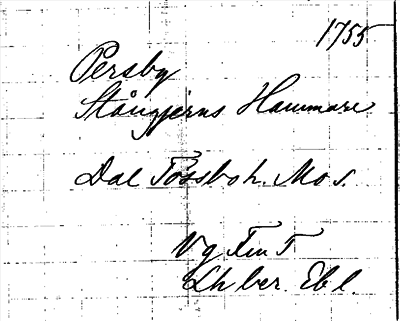 1755
Persby
Stångjerns Hammare
Dal Tössbo h. Mo s.
Vg Fin T
Lh ber. Ebl.